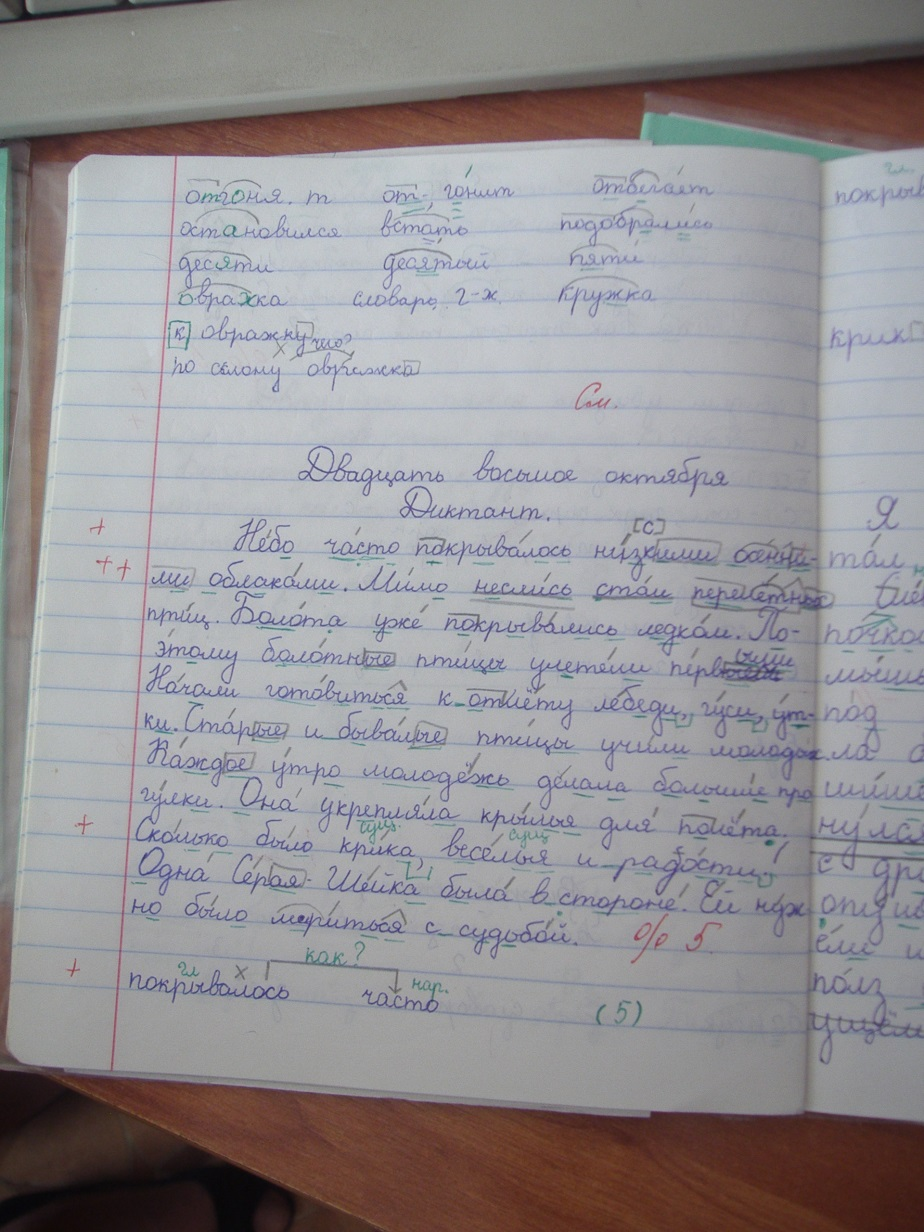 отгоня. т от-, гонит отбегает
остановился встать подобрались
десяти десятый пяти
овражка словарь, г-ж, кружка
к овражку чего?
по склону овражка
См.
Двадцать восьмое октября
Диктант.
[с]
Небо часто покрывалось низкими осенни-
ми облаками. Мимо неслись стаи перелётных
птиц. Болота уже покрывались ледком. По-
этому болотные птицы улетели первыми
Начали готовиться к отлёту лебеди, гуси, ут-
ки. Старые и бывалые птицы учили молодых.
Каждое утро молодёжь делала большие про
гулки. Она укрепляла крылья для полёта.
сущ. сущ
Сколько было крика, веселья и радости!
Одна Серая Шейка была в стороне. Ей нуж
но было мириться с судьбой. 0/0 5
как?
гл х нар.
покрывалось часто
(5)
покрыв
крик
Я
тал
почкой
мышь
под
ла
нула
с
ёли и
полз